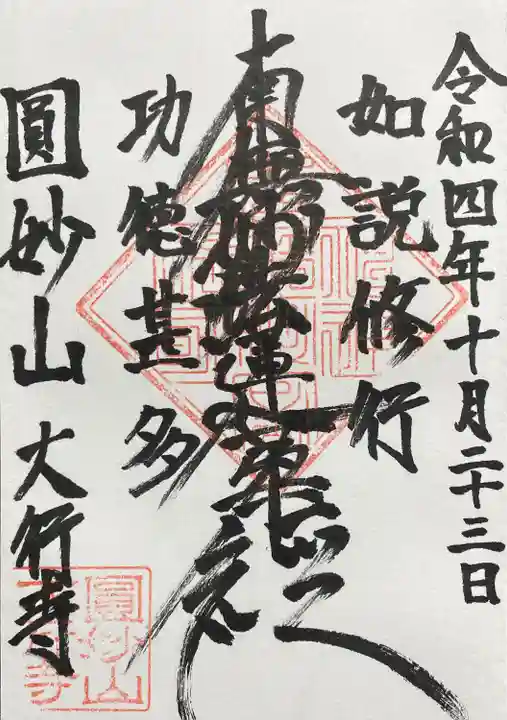 令和四年十月二十三日
如説修行
南無妙法蓮華経
功徳甚多
圓妙山 大行寺
圓妙山
大行寺